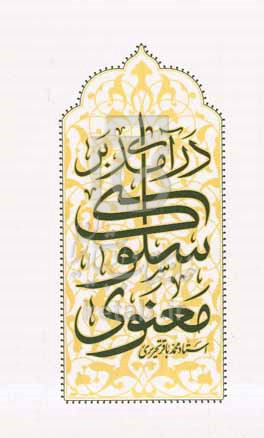 درآمدی بر
سلوک
معنوی
استاد محمد باقر تحریری